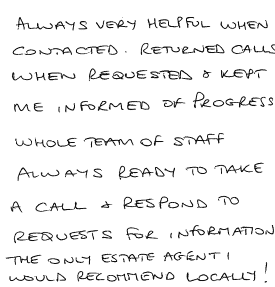 ALWAYS VERY HELPFUL WHEN
CONTACTED. RETURNED CALLS
WHEN REQUESTED & KEPT
ME INFORMED OF PROGRESS
WHOLE TEAM OF STAFF
ALWAYS READY TO TAKE
A CALL & RESPOND TO
REQUESTS FOR INFORMATION
THE ONLY ESTATE AGENT I
WOULD RECOMMEND LOCALLY!